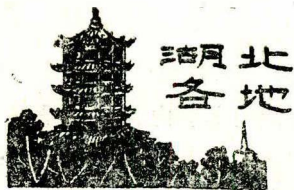 湖北
各地